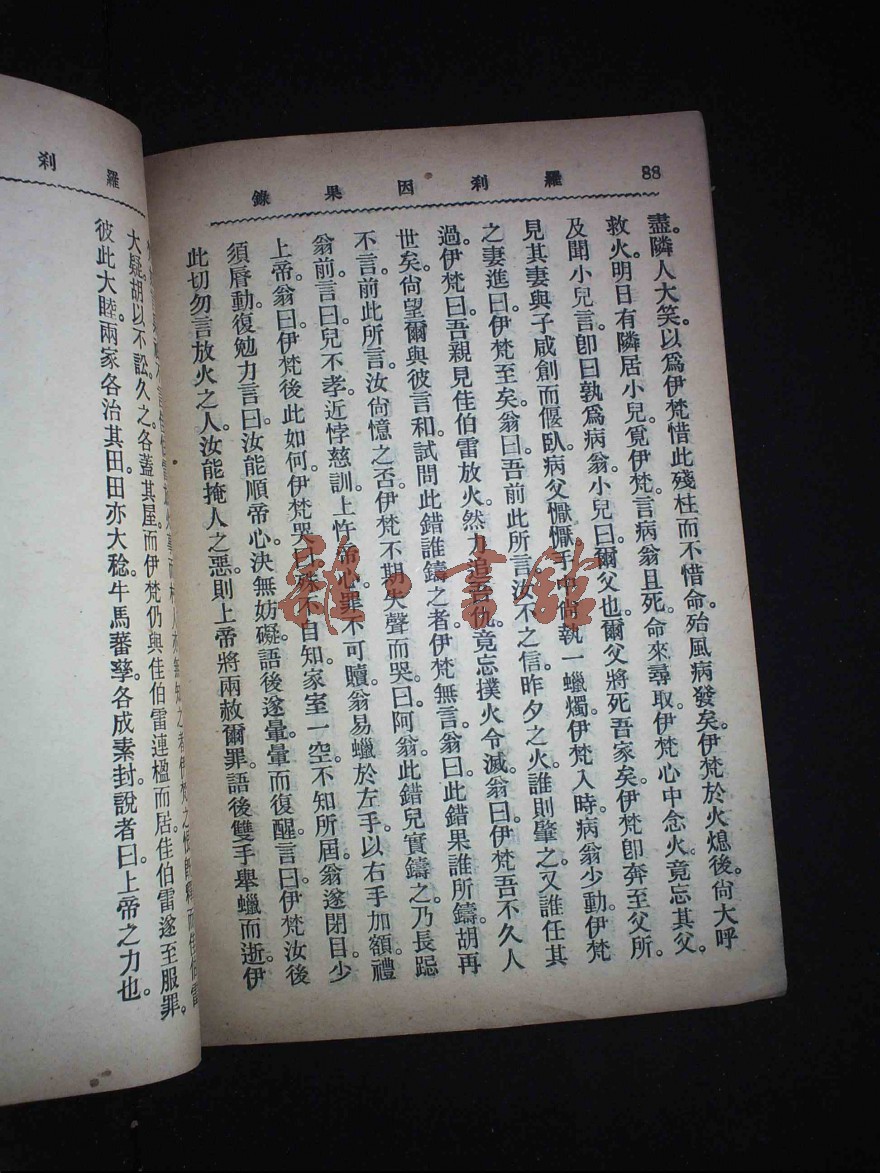 88
羅剎因果錄
盡。隣人大笑。以爲伊梵惜此殘柱而不惜命。殆風病發矣。伊梵於火熄後。尙大呼
救火。明日有隣居小兒覓伊梵。言病翁且死。命來尋取。伊梵心中念火。竟忘其父。
及聞小兒言。卽曰孰爲病翁。小兒曰。爾父也。爾父將死吾家矣。伊梵卽奔至父所。
見其妻與子咸創而偃臥。病父懨懨。手中尙執一蠟燭。伊梵入時。病翁少動。伊梵
之妻進曰。伊梵至矣。翁曰。吾前此所言。汝不之信。昨夕之火。誰則肇之。又誰任其
過。伊梵曰。吾親見佳伯雷放火。然力追吾仇。竟忘撲火令滅。翁曰。伊梵。吾不久人
世矣。尙望爾與彼言和。試問此錯誰鑄之者。伊梵無言。翁曰。此錯果誰所鑄。胡再
不言。前此所言。汝尙憶之否。伊梵不期失聲而哭。曰。阿翁此錯兒實鑄之。乃長跽
翁前。言曰。兒不孝。近悖慈訓。上忤帝心。罪不可贖。翁易蠟於左手。以右手加額禮
上帝。翁曰。伊梵後此如何。伊梵哭曰。殊不自知。家室一空。不知所屆。翁遂閉目少
須。脣動。復勉力言曰。汝能順帝心。決無妨礙。語後遂暈。暈而復醒。言曰。伊梵。汝後
此切勿言放火之人。汝能掩人之惡。則上帝將兩赦爾罪。語後雙手舉蠟而逝。伊
羅剎
大疑。胡以不訟。久之。各蓋其屋。而伊梵仍與佳伯雷連楹而居。佳伯雷遂至服罪。
彼此大睦。兩家各治其田。田亦大稔。牛馬蕃孳。各成素封。說者曰。上帝之力也。
雜·書館